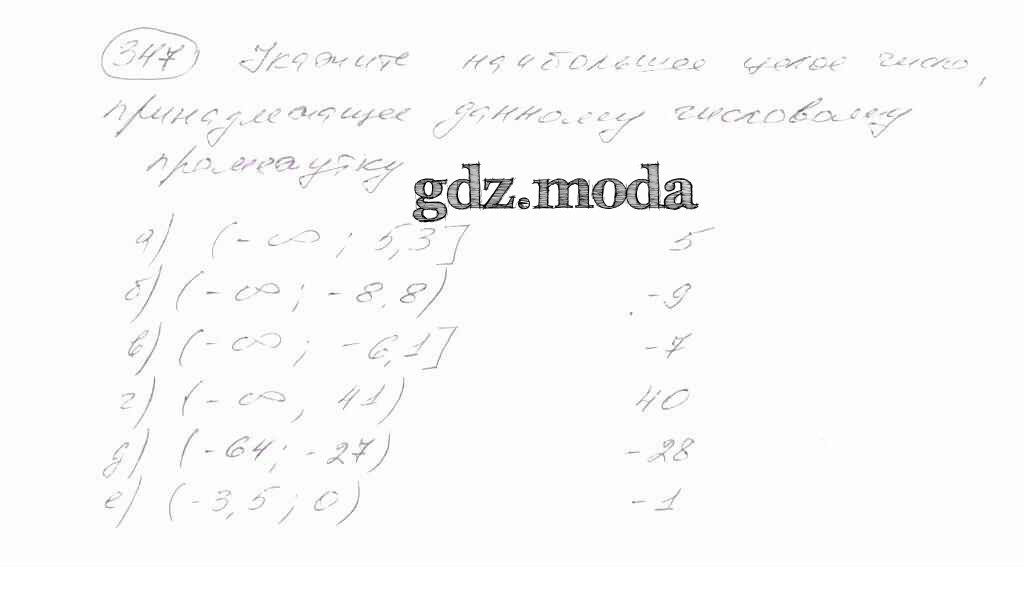 347 Укажите наибольшее целое число,
принадлежащее данному числовому
промежутку
gdz.moda
а) (-∞; 5,3] 5
б) (-∞; -8,8) -9
в) (-∞; -6,1] -7
г) (-∞, 41) 40
д) (-64; -27) -28
е) (-3,5; 0) -1